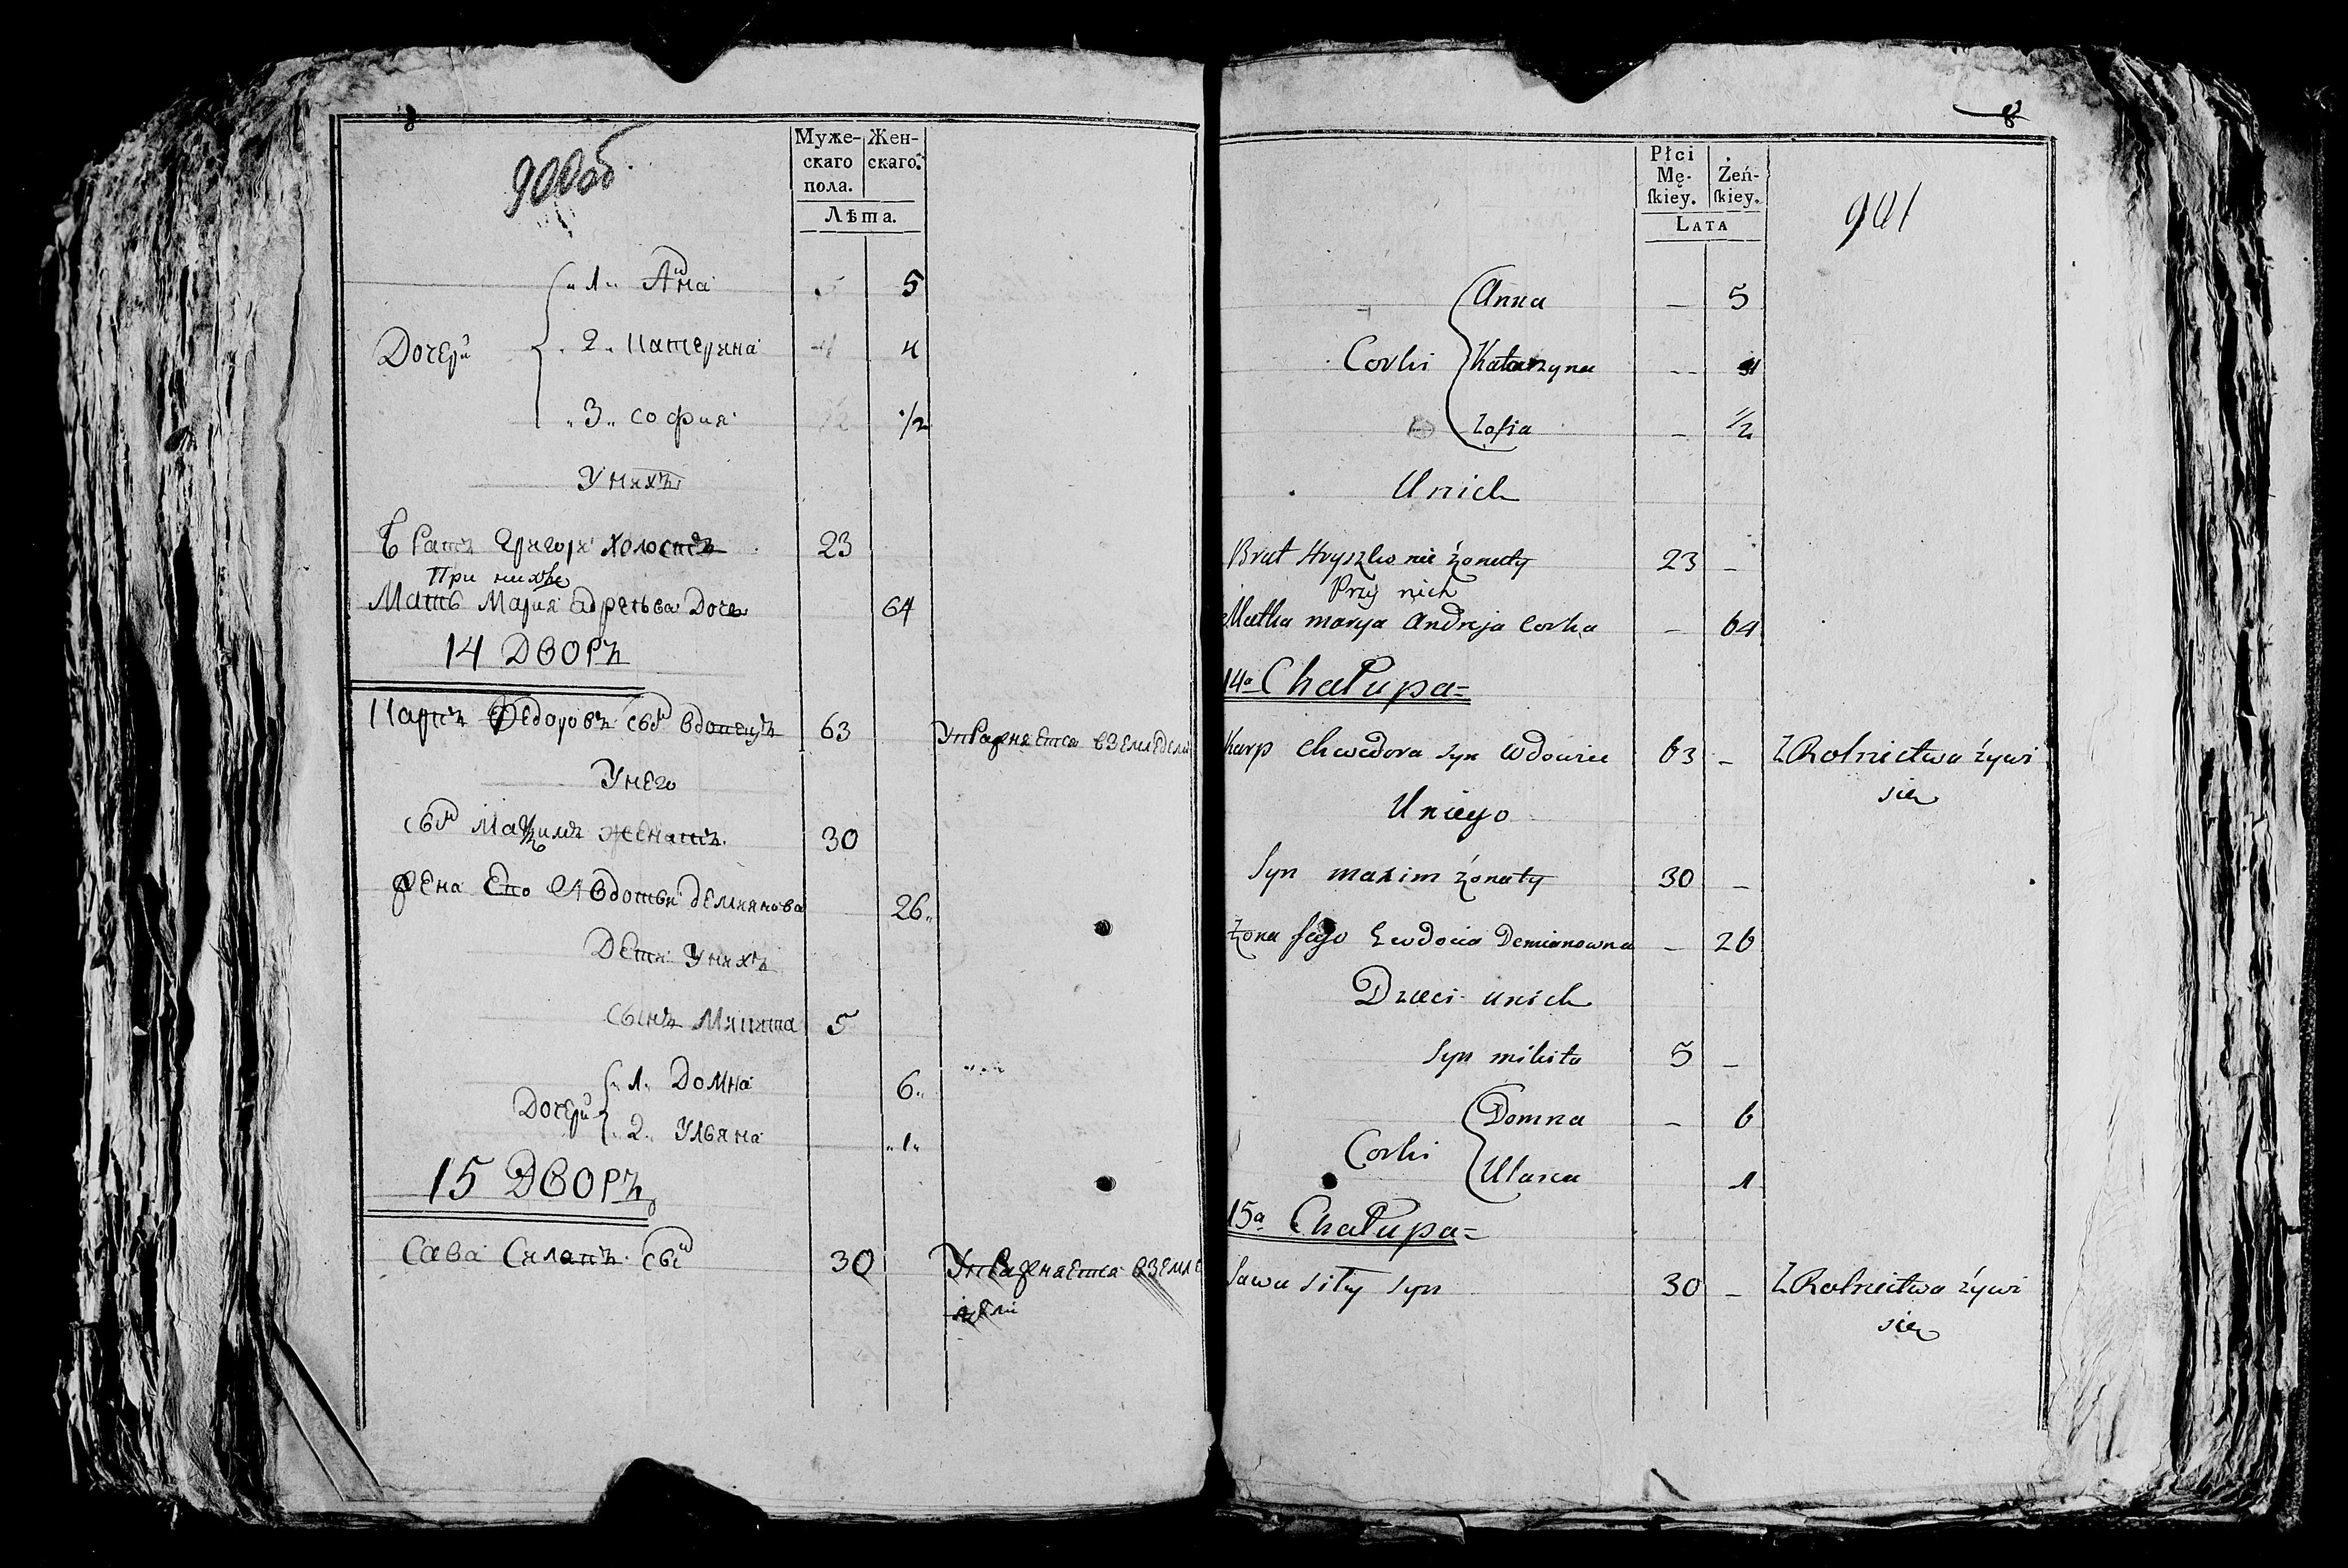 8
900об.
Муже-
скаго
пола.
Жен-
скаго.
Лѣта.
"1" Анна 5
Дочери 2. Катерина 4
"3" София 1/2
У нихъ
Братъ Григори холостъ 23
При нихъ
Мать Мария Адреева дочь 64
14 Дворъ
Карпъ Федоровъ сынъ вдовецъ 63
У него
сынъ Максимъ женатъ 30
жена Его Авдотья Демянова 26"
Дети у нихъ
Сынъ Микита 5
"1" Домна 6"
Дочери
2" Ульяна "1"
15 Дворъ
Сава Силы сынъ 30
8
901
Płci
Mę-
ſkiey.
Żeń-
ſkiey.
LATA
Anna – 5
Corki Katarzyna – 4
Zofia – 1/2
Unich
Brat Hryszko nie żonaty 23 –
Przy nich
Matka marya Andreja Corka – 64
14a Chałupa=
Karp Chwedora syn Wdowiec 63 – Z Rolnictwa żywi
się
Uniego
Syn maxim żonaty 30 –
Żona Jego Ewdocia Demianowna – 26
Dzieci unich
Syn mikita 5 –
Domna – 6
Corki
Ulana 1
15a Chałupa=
Sawa siły syn 30 – Z Rolnictwa żywi
się